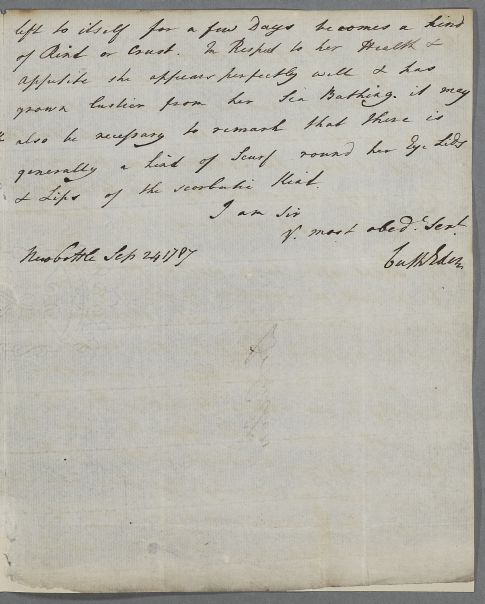 left to itself for a few Days becomes a kind
of Rind or Crust. In Respect to her Health &
appetite she appears perfectly well & has
grown lustier from her Sea Bathing. it may
also be necessary to remark that there is
generally a kind of Scurf round her Eye Lids
& Lips of the scorbutic Kind.
I am Sir
Y. most obed.t Serv.t
Newbottle Sep 24 1787
Cuth Eden